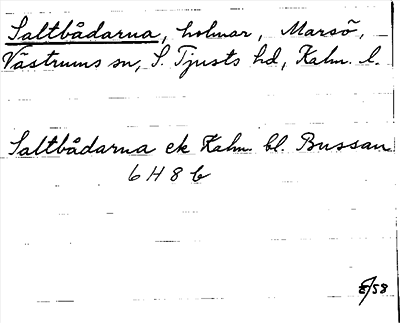 Saltbådarna, holmar, Marsö,
Västrums sn, S. Tjusts hd, Kalm. l.
Saltbådarna ek Kalm. bl. Bussan
6 H 8 b
E/58